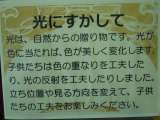 光にすかして
光は、自然からの贈り物です。光が
色に当たれば、色が美しく変化します。
子供たちは色の重なりを工夫した
り、光の反射を工夫したりしました。
立ち位置や見る方向を変えて、子供
たちの工夫をお楽しみください。